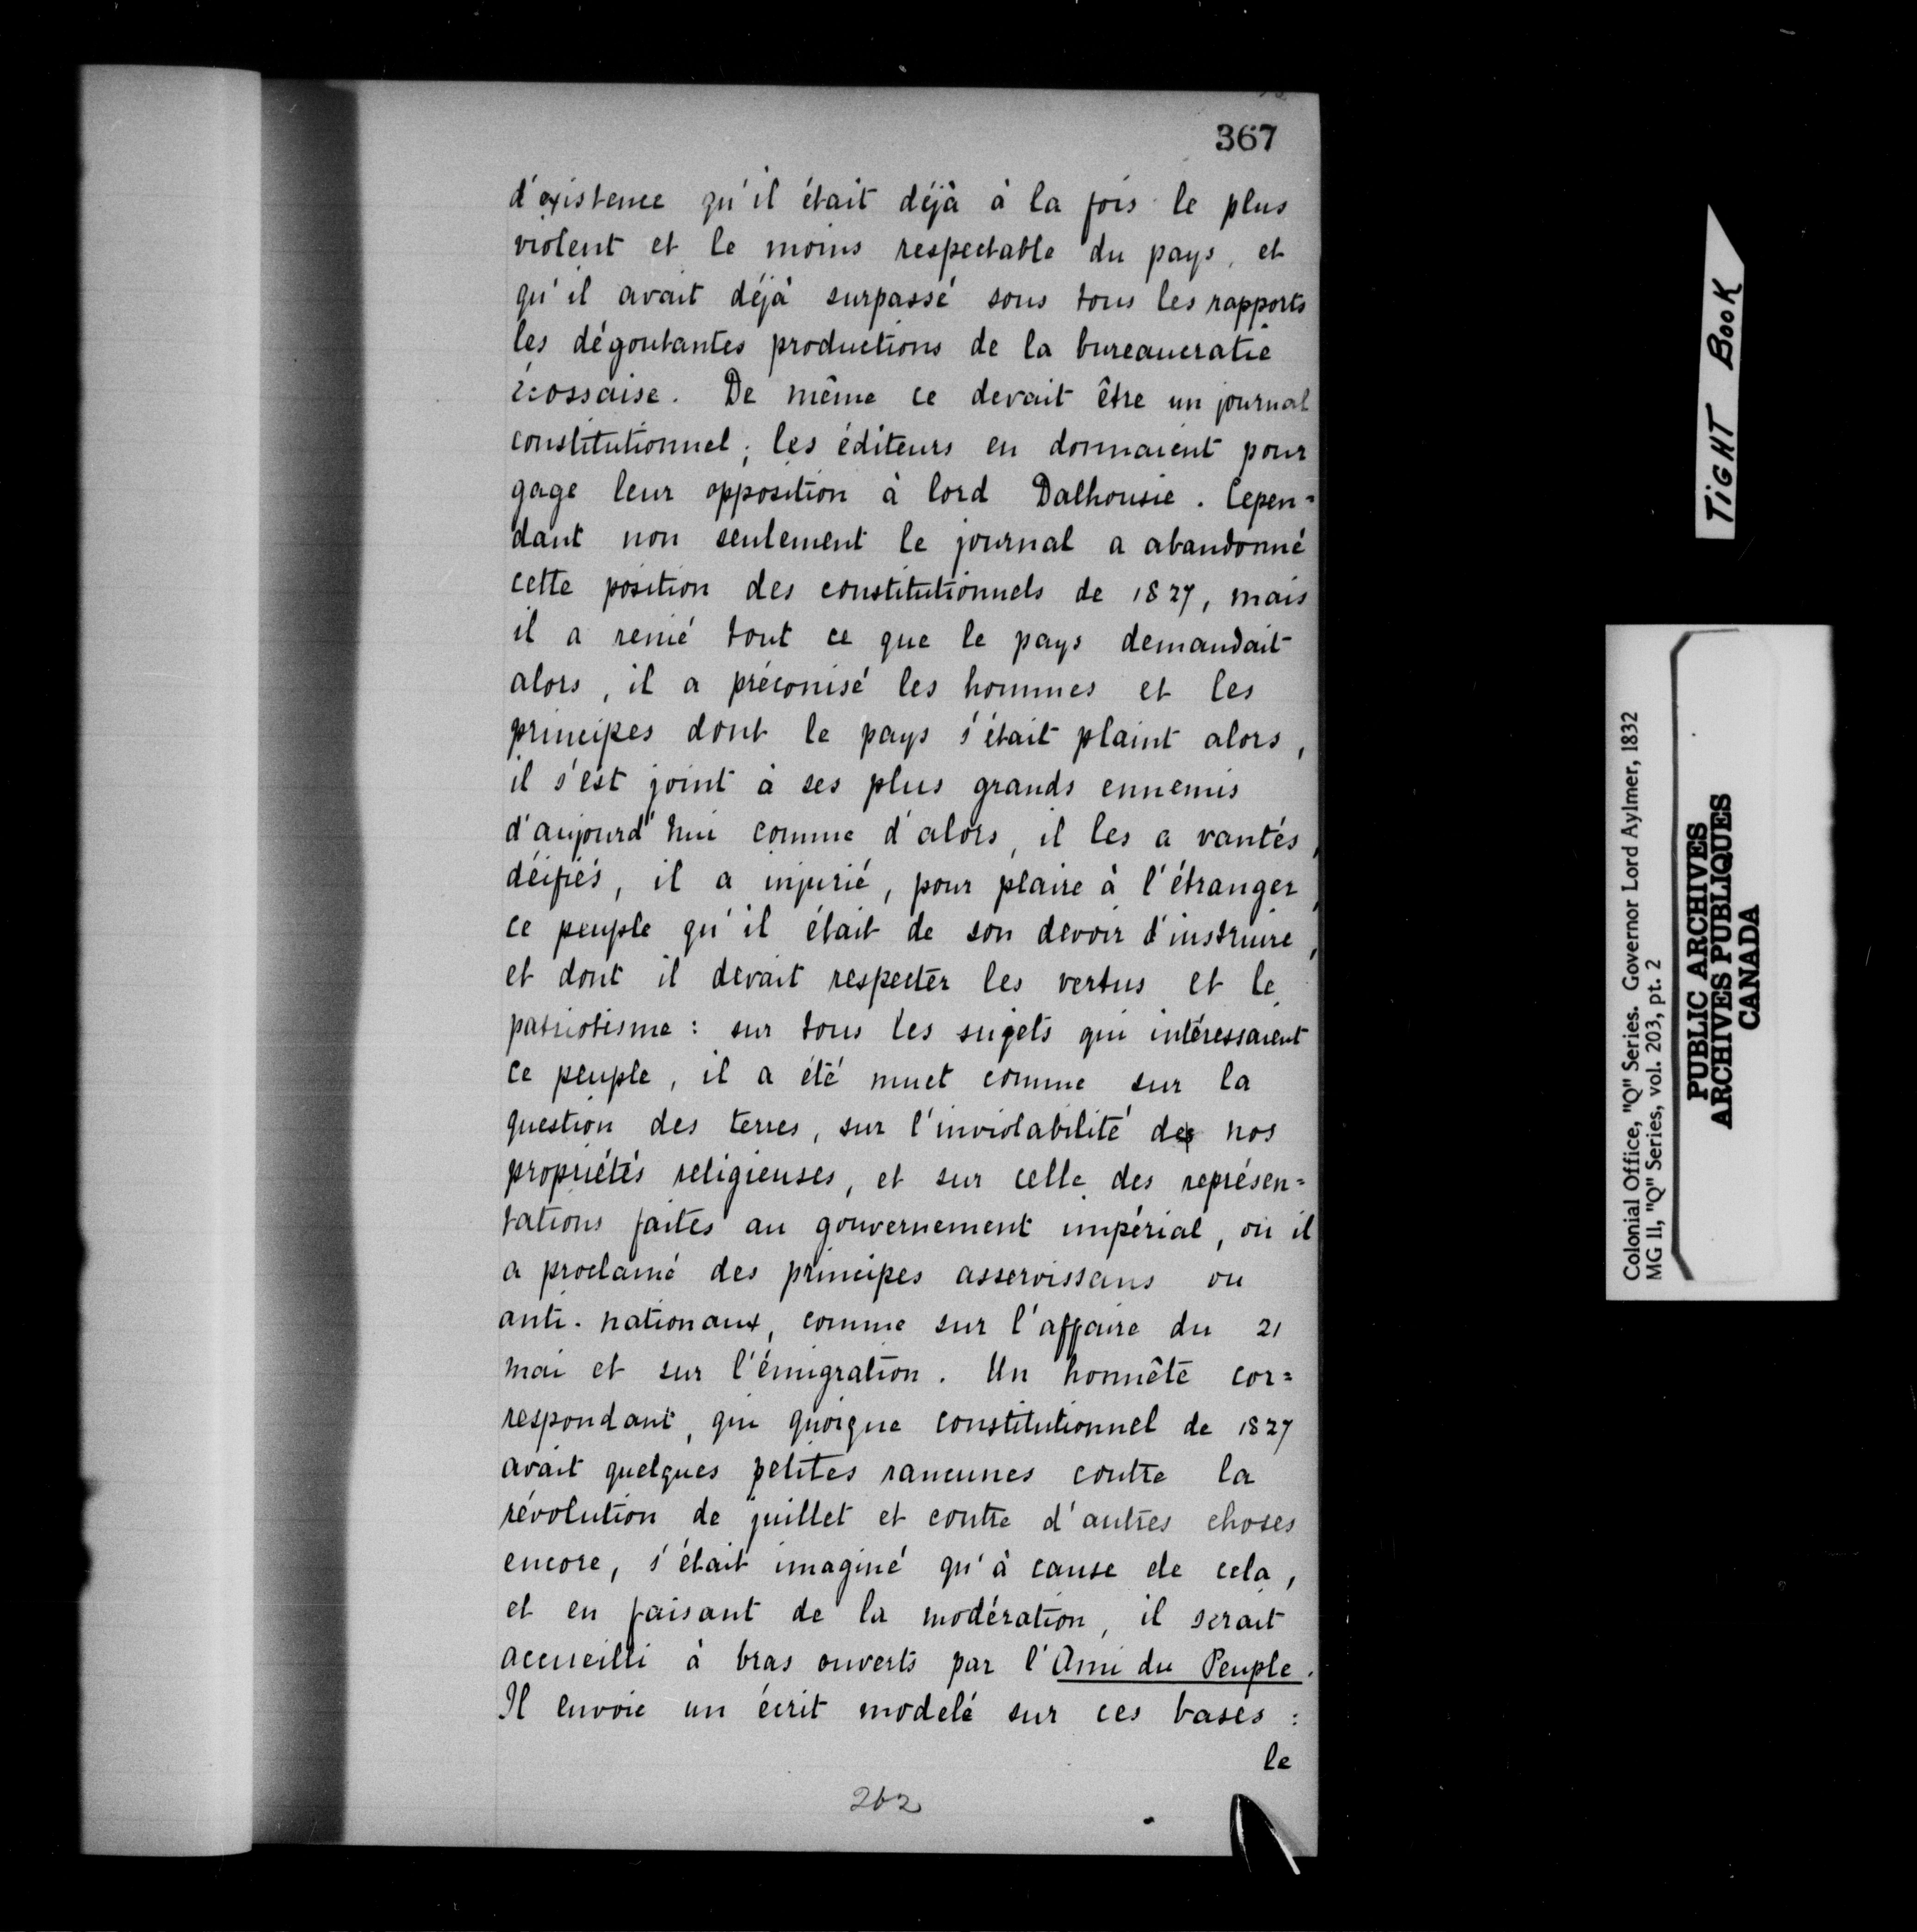 367
d'existence qu'il était déjà à la fois le plus
violent et le moins respectable du pays, et
qu'il avait déjà surpassé sous tous les rapports
les dégoutantes productions de la bureaucratie
écossaise. De même ce devait être un journal
constitutionnel; les éditeurs en donnaient pour
gage leur opposition à lord Dalhousie. Cepen=
dant non seulement le journal a abandonné
cette position des constitutionnels de 1827, mais
il a renié tout ce que le pays demandait
alors, il a préconisé les hommes et les
principes dont le pays s'était plaint alors,
il s'est joint à ses plus grands ennemis
d'aujourd'hui comme d'alors, il les a vantés,
déifiés, il a injurié, pour plaire à l'étranger,
ce peuple qu'il était de son devoir d'instruire,
et dont il devait respecter les vertus et le
patriotisme: sur tous les sujets qui intéressaient
ce peuple, il a été muet comme sur la
question des terres, sur l'inviolabilité de nos
propriétés religieuses, et sur celle des représen=
tations faites au gouvernement impérial, où il
a proclamé des principes asservissans ou
anti-nationaux, comme sur l'affaire du 21
mai et sur l'émigration. Un honnête cor=
respondant, qui quoique constitutionnel de 1827
avait quelques petites rancunes contre la
révolution de juillet et contre d'autres choses
encore, s'était imaginé qu'à cause de cela,
et en faisant de la modération, il serait
accueilli à bras ouverts par l'Ami du Peuple.
Il envoie un écrit modelé sur ces bases:
le
262
TIGHT BOOK
Colonial Office, "Q" Series. Governor Lord Aylmer, 1832
MG 11, "Q" Series, vol. 203, pt. 2
PUBLIC ARCHIVES
ARCHIVES PUBLIQUES
CANADA